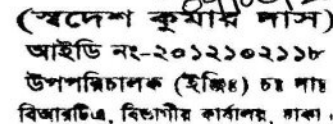 (স্বদেশ কুমার দাস)
আইডি নং-২০১২১০২১১৮
উপপরিচালক (ইঞ্জিঃ) চঃ দাঃ
বিআরটিএ, বিভাগীয় কার্যালয়, ঢাকা।